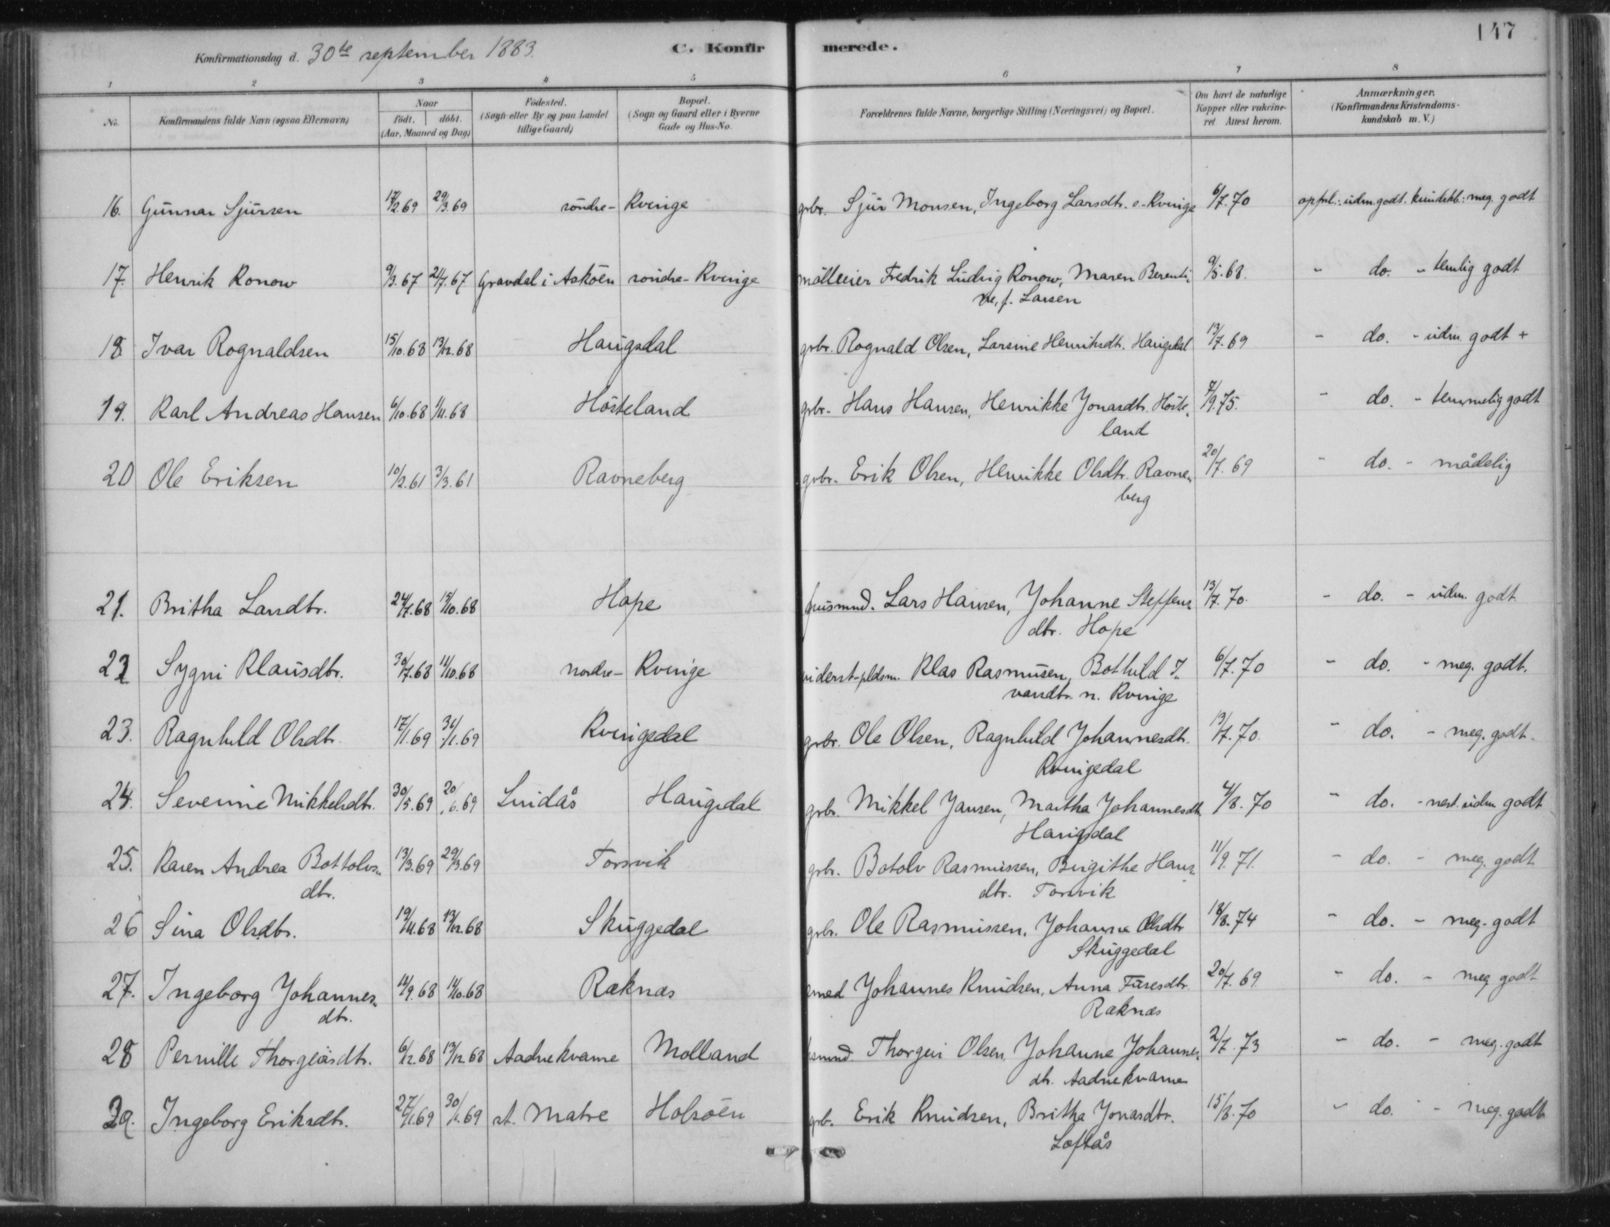 147
Konfirmationsdag d. 30te september 1883.
C. Konfirmerede.
1 2 3 4 5 6 7 8
No.
Konfirmandens fulde Navn (ogsaa Efternavn)
Naar
födt. döbt.
(Aar, Maaned og Dag)
Födested.
(Sogn eller By og paa Landet
tillige Gaard)
Bopæl.
(Sogn og Gaard eller i Byerne
Gade og Hus-No.
Forældrenes fulde Navne, borgerlige Stilling (Næringsvei) og Bopæl.
Om havt de naturlige
Kopper eller vakcine-
ret Attest herom.
Anmærkninger.
(Konfirmandens Kristendoms-
kundskab m. V.)
16. Gunnar Sjursen 17/2 69 29/3 69 söndre- Kvinge grbr. Sjur Monsen, Ingeborg Larsdtr. s-Kvinge 6/7. 70 opførl: udm. godt. kundskb: meg. godt
17. Henrik Ronow 9/3. 67 21/7. 67 Gravdal i Asköen söndre- Kvinge Fredrik Ludvig Ronow, Maren Berenti-
ne, f. Larsen 9/5. 68. - do. - temlig godt
18 Ivar Rognaldsen 15/10. 68 13/12. 68 Haugsdal grbr. Rognald Olsen, Larsine Henriksdtr. Haugsdal 13/7. 69 - do. - udm. godt +
19. Karl Andreas Hansen 6/10. 68 1/11. 68 Hösteland grbr. Hans Hansen, Henrikke Jonasdtr. Höste-
land 7/9. 75. - do. - temmelig godt
20 Ole Eriksen 10/2. 61 3/3. 61 Ravneberg grbr. Erik Olsen, Henrikke Olsdtr. Ravne-
berg 20/7. 69 - do. - mådelig
21. Britha Larsdtr. 24/7. 68 18/10. 68 Hope husmnd. Lars Hansen, Johanne Steffens-
dtr. Hope 13/7. 70. - do. - udm. godt.
22 Sygni Klausdtr. 30/7. 68 11/10. 68 nordre- Kvinge Klas Rasmusen, Bothild I-
varsdtr. n. Kvinge 6/7. 70 - do. - meg. godt.
23. Ragnhild Olsdtr. 17/1. 69 31/1. 69 Kvingedal grbr. Ole Olsen, Ragnhild Johannesdtr.
Kvingedal 13/7. 70. - do. - meg. godt.
24. Severine Mikkelsdtr. 30/5. 69 20/6. 69 Lindås Haugsdal grbr. Mikkel Jansen, Martha Johannesdtr.
Haugsdal 4/8. 70 - do. - nest. udm. godt
25. Karen Andrea Bottolvs-
dtr. 13/3. 69 29/3. 69 Torsvik grbr. Botolv Rasmussen, Birgithe Hans-
dtr. Torsvik 11/9. 71. - do. - meg. godt
26 Sina Olsdtr. 19/11. 68 13/12. 68 Skuggedal grbr. Ole Rasmussen, Johanna Olsdtr
Skuggedal 18/8. 74 - do. - meg. godt
27. Ingeborg Johannes-
dtr. 14/9. 68 11/10. 68 Raknæs smed Johannes Knudsen, Anna
Raknæs 20/7. 69 - do. - meg godt
28 Pernille 6/12. 68 13/12 68 Aadnekvame Molland Olsen, Johanne Johannes-
dtr. Aadnekvame 2/7. 73 - do. - meg. godt
29. Ingeborg Eriksdtr. 27/1. 69 30/1. 69 st. Matre Holsöen grb. Erik Knudsen, Britha Jonasdtr.
Loftås 15/8. 70 - do. - meg. godt